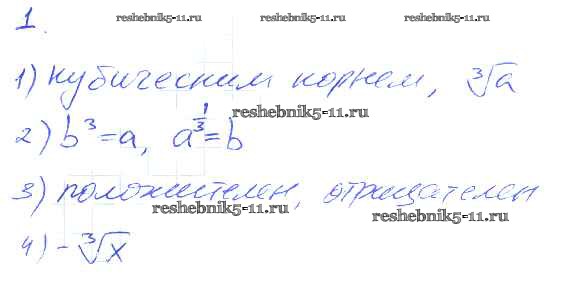 reshebnik5-11.ru reshebnik5-11.ru
1.
1) кубическим корнем, ∛a
reshebnik5-11.ru
2) b³=a, a^(1/3)=b
3) положителен, отрицателен
reshebnik5-11.ru reshebnik5-11.ru
4) -∛x